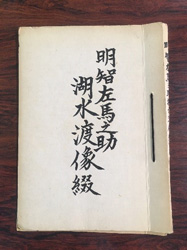 明智左馬之助
湖水渡像綴